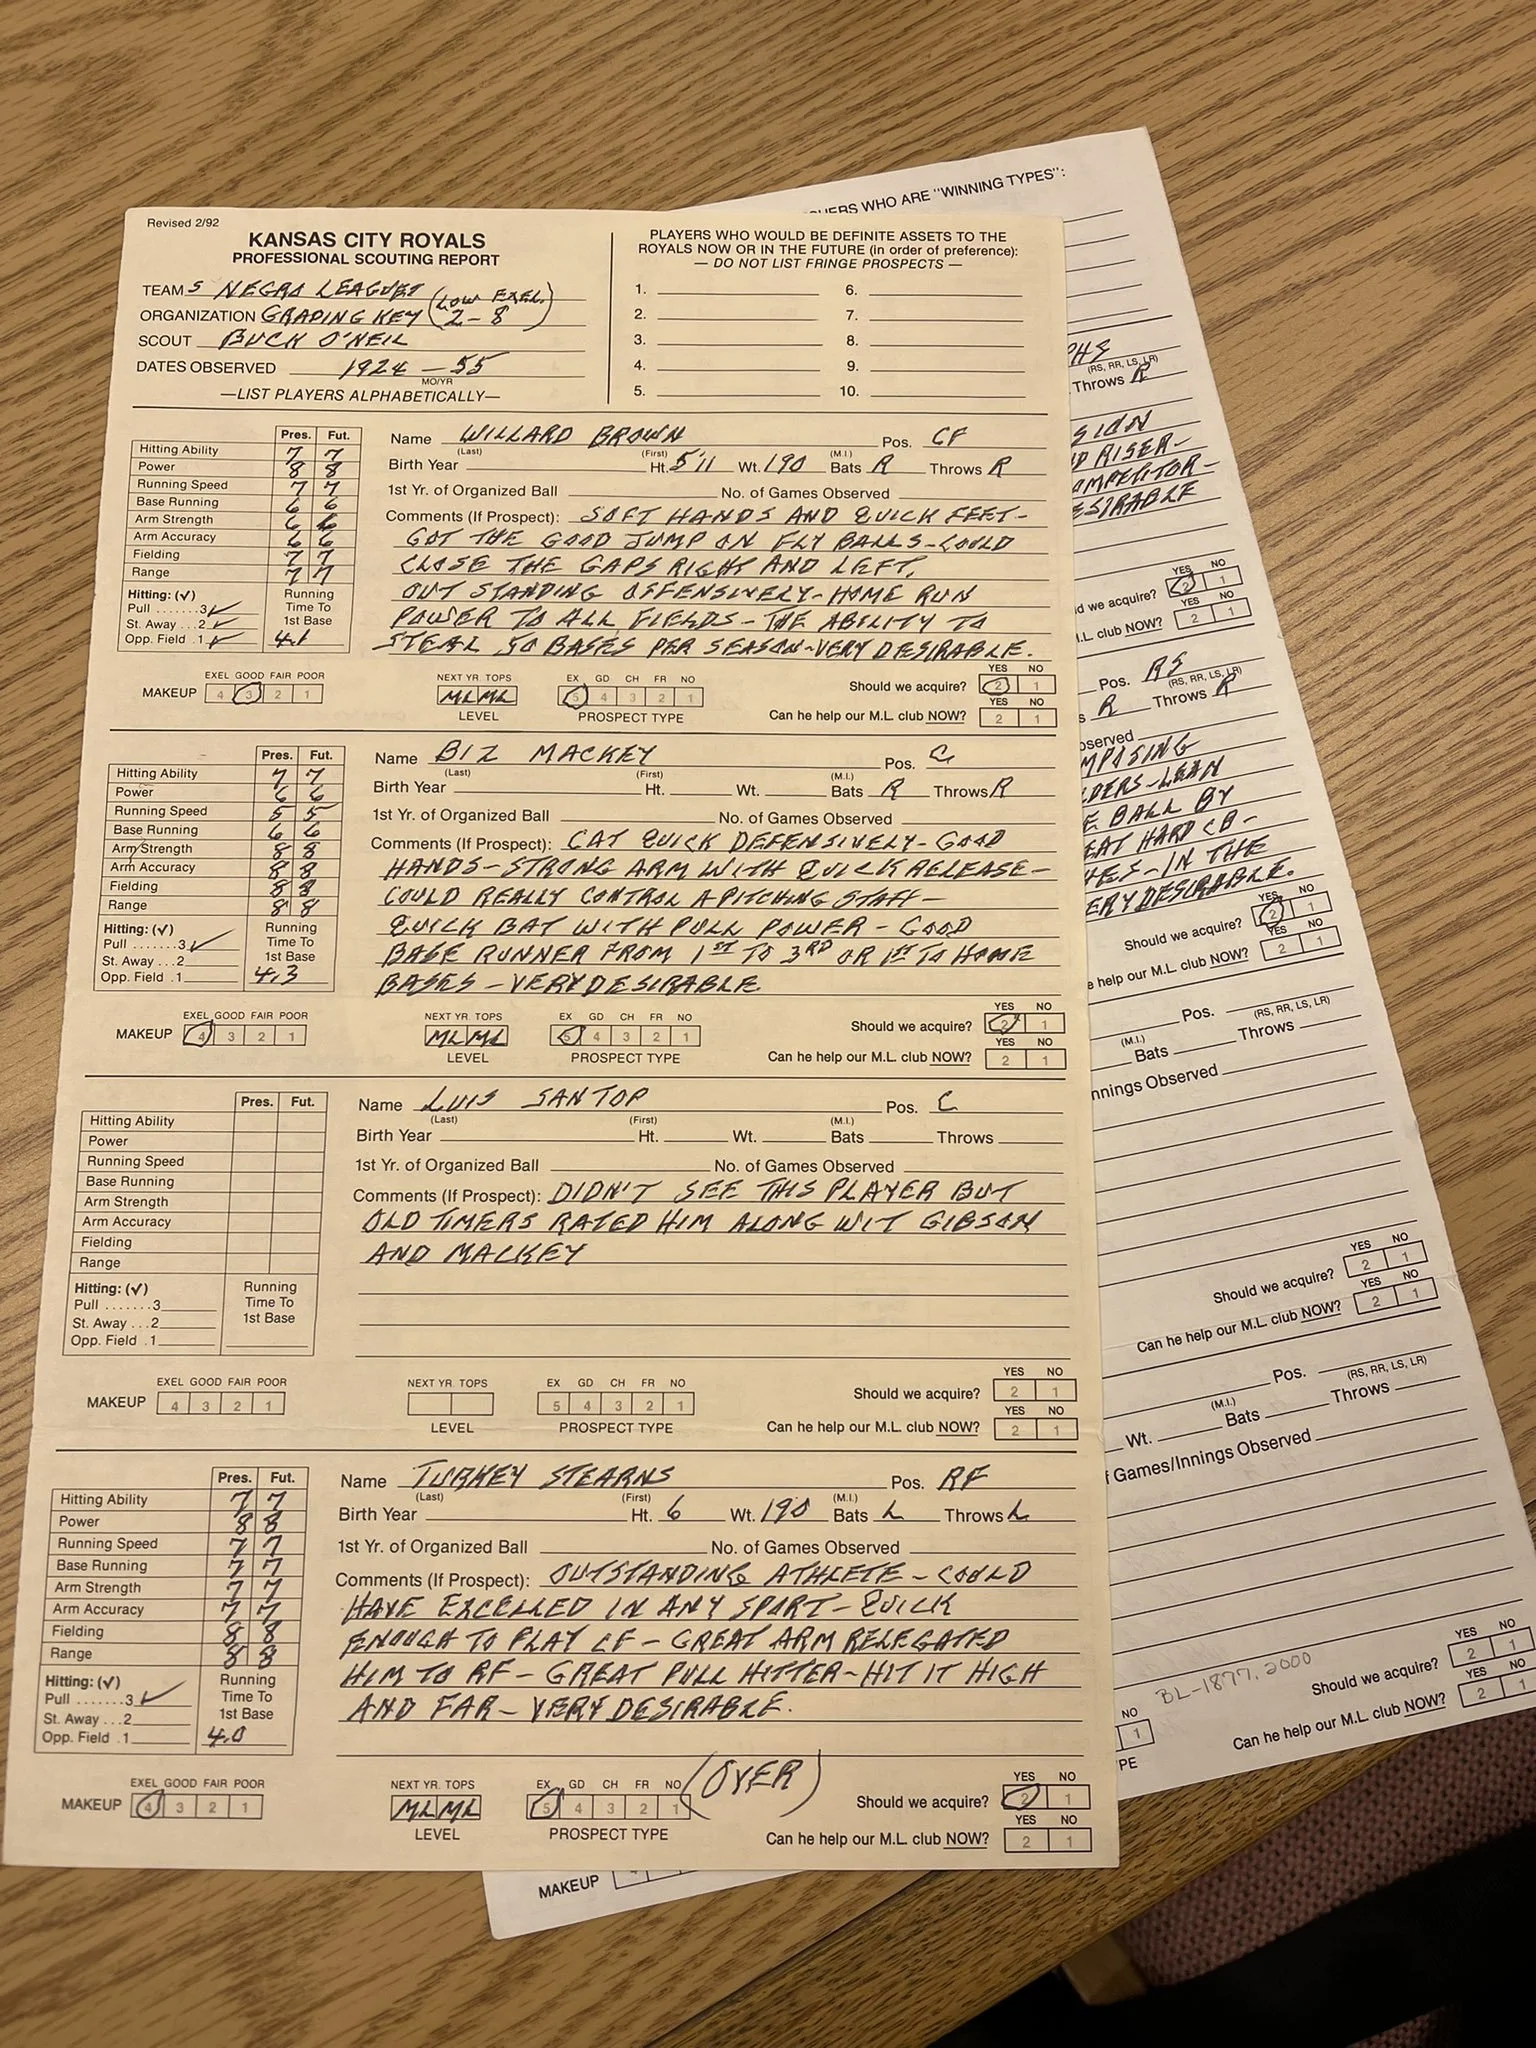 Revised 2/92
KANSAS CITY ROYALS
PROFESSIONAL SCOUTING REPORT
TEAM S NEGRO LEAGUES
ORGANIZATION GRADING KEY (LOW EXEL. 2-8)
SCOUT BUCK O'NEIL
DATES OBSERVED 1924-55
MO/YR
—LIST PLAYERS ALPHABETICALLY—
PLAYERS WHO WOULD BE DEFINITE ASSETS TO THE
ROYALS NOW OR IN THE FUTURE (in order of preference):
— DO NOT LIST FRINGE PROSPECTS —
1. 6.
2. 7.
3. 8.
4. 9.
5. 10.
Pres. Fut.
Hitting Ability 7 7
Power 8 8
Running Speed 7 7
Base Running 6 6
Arm Strength 6 6
Arm Accuracy 6 6
Fielding 7 7
Range 7 7
Hitting: (✓) Running
Pull .......3 ✓ Time To
St. Away ...2 ✓ 1st Base
Opp. Field .1 ✓ 4.1
Name WILLARD BROWN Pos. CF
(Last) (First) (M.I.)
Birth Year Ht. 5'11 Wt. 190 Bats R Throws R
1st Yr. of Organized Ball No. of Games Observed
Comments (If Prospect): SOFT HANDS AND QUICK FEET-
GOT THE GOOD JUMP ON FLY BALLS-COULD
CLOSE THE GAPS RIGHT AND LEFT,
OUT STANDING OFFENSIVELY-HOME RUN
POWER TO ALL FIELDS-THE ABILITY TO
STEAL 50 BASES PER SEASON-VERY DESIRABLE.
EXEL GOOD FAIR POOR
MAKEUP 4 3 2 1
NEXT YR. TOPS
ML ML
LEVEL
EX GD CH FR NO
5 4 3 2 1
PROSPECT TYPE
YES NO
Should we acquire? 2 1
YES NO
Can he help our M.L. club NOW? 2 1
Pres. Fut.
Hitting Ability 7 7
Power 6 6
Running Speed 5 5
Base Running 6 6
Arm Strength 8 8
Arm Accuracy 8 8
Fielding 8 8
Range 8 8
Hitting: (✓) Running
Pull .......3 ✓ Time To
St. Away ...2 1st Base
Opp. Field .1 4.3
Name BIZ MACKEY Pos. C
(Last) (First) (M.I.)
Birth Year Ht. Wt. Bats R Throws R
1st Yr. of Organized Ball No. of Games Observed
Comments (If Prospect): CAT QUICK DEFENSIVELY-GOOD
HANDS-STRONG ARM WITH QUICK RELEASE-
COULD REALLY CONTROL A PITCHING STAFF-
QUICK BAT WITH PULL POWER-GOOD
BASE RUNNER FROM 1ST TO 3RD OR 1ST TO HOME
BASES-VERY DESIRABLE
EXEL GOOD FAIR POOR
MAKEUP 4 3 2 1
NEXT YR. TOPS
ML ML
LEVEL
EX GD CH FR NO
5 4 3 2 1
PROSPECT TYPE
YES NO
Should we acquire? 2 1
YES NO
Can he help our M.L. club NOW? 2 1
Pres. Fut.
Hitting Ability
Power
Running Speed
Base Running
Arm Strength
Arm Accuracy
Fielding
Range
Hitting: (✓) Running
Pull .......3 Time To
St. Away ...2 1st Base
Opp. Field .1
Name LUIS SANTOP Pos. C
(Last) (First) (M.I.)
Birth Year Ht. Wt. Bats Throws
1st Yr. of Organized Ball No. of Games Observed
Comments (If Prospect): DIDN'T SEE THIS PLAYER BUT
OLD TIMERS RATED HIM ALONG WIT GIBSON
AND MACKEY
EXEL GOOD FAIR POOR
MAKEUP 4 3 2 1
NEXT YR. TOPS
LEVEL
EX GD CH FR NO
5 4 3 2 1
PROSPECT TYPE
YES NO
Should we acquire? 2 1
YES NO
Can he help our M.L. club NOW? 2 1
Pres. Fut.
Hitting Ability 7 7
Power 8 8
Running Speed 7 7
Base Running 7 7
Arm Strength 7 7
Arm Accuracy 7 7
Fielding 8 8
Range 8 8
Hitting: (✓) Running
Pull .......3 ✓ Time To
St. Away ...2 1st Base
Opp. Field .1 4.0
Name TURKEY STEARNS Pos. RF
(Last) (First) (M.I.)
Birth Year Ht. 6 Wt. 190 Bats L Throws L
1st Yr. of Organized Ball No. of Games Observed
Comments (If Prospect): OUTSTANDING ATHLETE-COULD
HAVE EXCELLED IN ANY SPORT-QUICK
ENOUGH TO PLAY CF-GREAT ARM RELEGATED
HIM TO RF-GREAT PULL HITTER-HIT IT HIGH
AND FAR-VERY DESIRABLE.
(OVER)
EXEL GOOD FAIR POOR
MAKEUP 4 3 2 1
NEXT YR. TOPS
ML ML
LEVEL
EX GD CH FR NO
5 4 3 2 1
PROSPECT TYPE
YES NO
Should we acquire? 2 1
YES NO
Can he help our M.L. club NOW? 2 1
WHO ARE "WINNING TYPES":
(RS, RR, LS, LR)
Throws R
RISER-
YES NO
we acquire? 2 1
YES NO
club NOW? 2 1
Pos. RS
(RS, RR, LS, LR)
R Throws R
-LEAN
BALL BY
HARD CB-
-IN THE
DESIRABLE.
YES NO
Should we acquire? 2 1
YES NO
help our M.L. club NOW? 2 1
Pos.
(M.I.) (RS, RR, LS, LR)
Bats Throws
Observed
YES NO
Should we acquire? 2 1
YES NO
Can he help our M.L. club NOW? 2 1
Pos.
(M.I.) (RS, RR, LS, LR)
Wt. Bats Throws
Games/Innings Observed
BL-1877.2000
YES NO
Should we acquire? 2 1
YES NO
Can he help our M.L. club NOW? 2 1
NO
1
MAKEUP